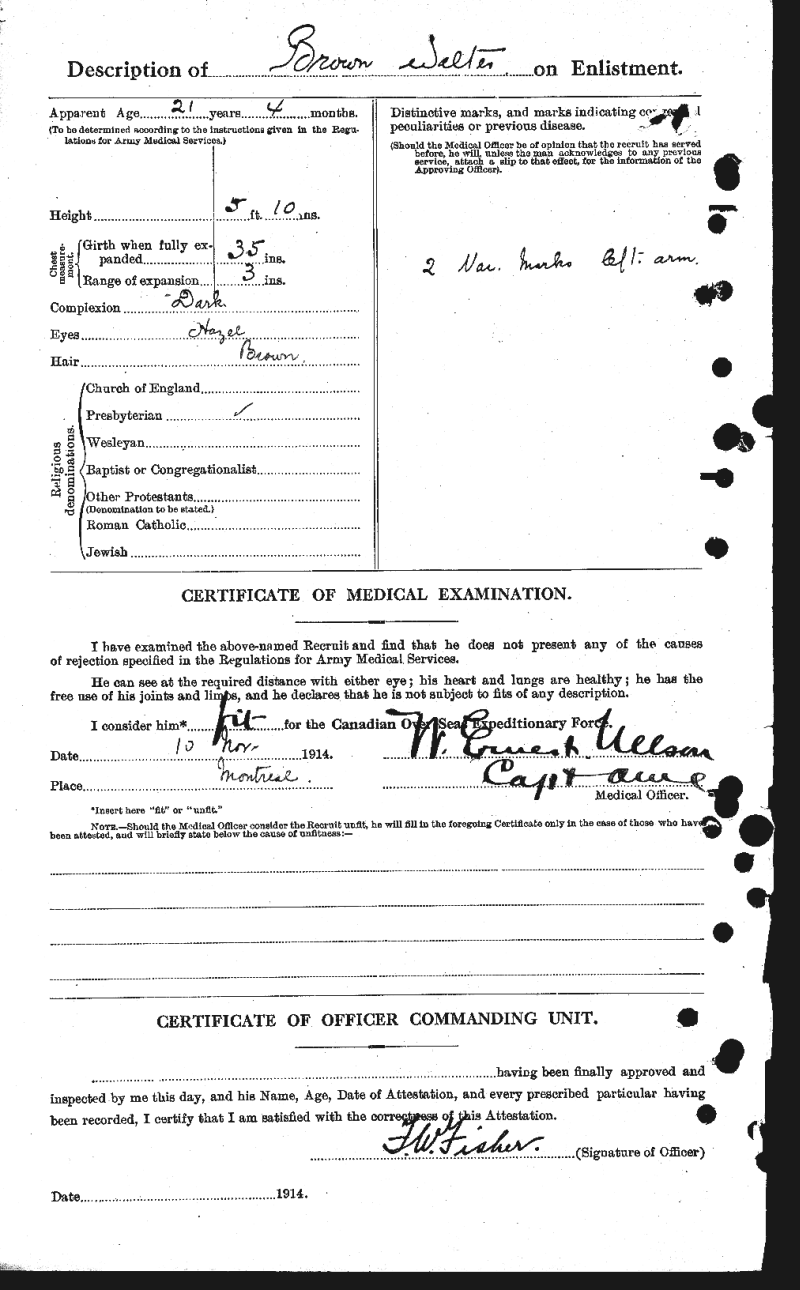 Description of Brown Walter on Enlistment.
Apparent Age 21 years 4 months.
(To be determined according to the instructions given in the Regu-
lations for Army Medical Services.)
Height 5 ft. 10 ins.
Chest measure-ment.
Girth when fully ex-
panded 35 ins.
Range of expansion 3 ins.
Complexion Dark
Eyes Hazel
Hair Brown.
Religious denominations.
Church of England
Presbyterian ✓
Wesleyan
Baptist or Congregationalist
Other Protestants
(Denomination to be stated.)
Roman Catholic
Jewish
Distinctive marks, and marks indicating
peculiarities or previous disease.
(Should the Medical Officer be of opinion that the recruit has served
before, he will, unless the man acknowledges to any previous
service, attach a slip to that effect, for the information of the
Approving Officer).
2 Vac. Marks left arm.
CERTIFICATE OF MEDICAL EXAMINATION.
I have examined the above-named Recruit and find that he does not present any of the causes
of rejection specified in the Regulations for Army Medical Services.
He can see at the required distance with either eye; his heart and lungs are healthy; he has the
free use of his joints and limbs, and he declares that he is not subject to fits of any description.
I consider him* fit for the Canadian Over-Sea Expeditionary Force.
Date 10 Nov. 1914. W. Ernest
Place Montreal. Capt
Medical Officer.
*Insert here "fit" or "unfit."
NOTE.—Should the Medical Officer consider the Recruit unfit, he will fill in the foregoing Certificate only in the case of those who have
been attested, and will briefly state below the cause of unfitness:—
CERTIFICATE OF OFFICER COMMANDING UNIT.
having been finally approved and
inspected by me this day, and his Name, Age, Date of Attestation, and every prescribed particular having
been recorded, I certify that I am satisfied with the correctness of this Attestation.
F.W. Fisher. (Signature of Officer)
Date 1914.